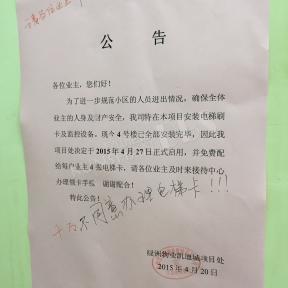 公 告
各位业主，您们好！
为了进一步规范小区的人员进出情况，确保全体
业主的人身及财产安全，我司特在本项目安装电梯刷
卡及监控设备。现今 4 号楼已全部安装完毕，因此我
项目处决定于 2015 年 4 月 27 日正式启用，并免费配
给每户业主 4 张电梯卡，请各位业主及时来接待中心
办理领卡手续 谢谢配合！
特此公告！
千万不同意办理电梯卡！！！
绿洲物业凯旋城项目处
2015 年 4 月 20 日